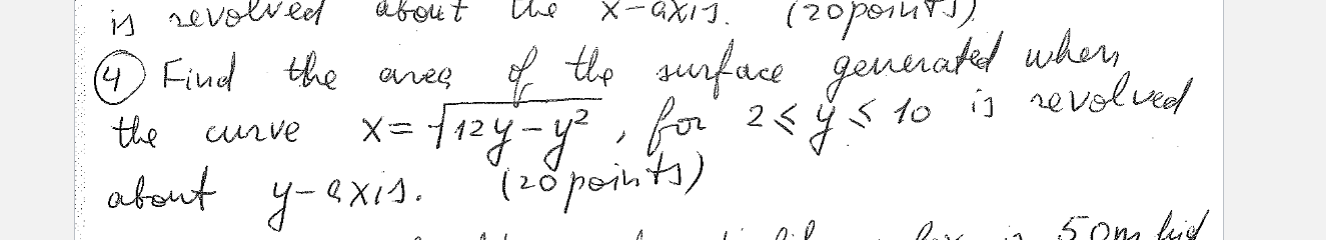 is revolved about the x-axis. (20points).
④ Find the area of the surface generated when
the curve x = √12y - y², for 2 ≤ y ≤ 10 is revolved
about y-axis. (20 points)
is 50m